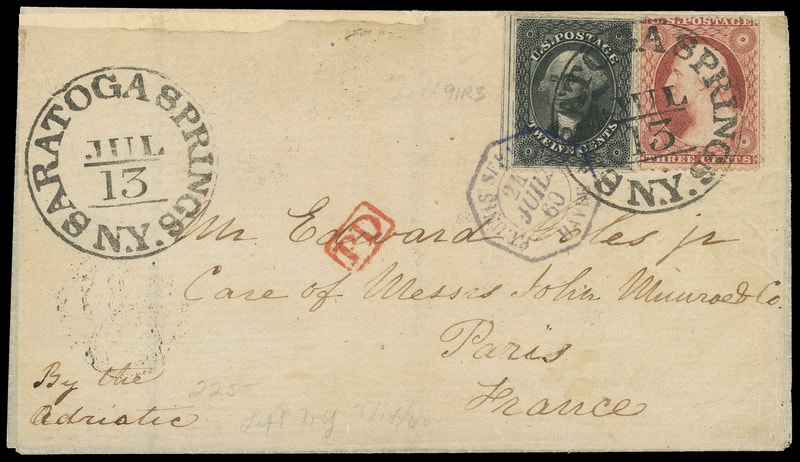 SARATOGA SPRINGS N.Y.
JUL
13
91R3
U.S. POSTAGE
TWELVE CENTS
U.S. POSTAGE
THREE CENTS
SARATOGA SPRINGS N.Y.
JUL
13
JUIL
60
PD
Mr Edward jr
Care of Messrs John Munroe & Co
Paris
France
By the
Adriatic
225-
Left NY 7/14/60